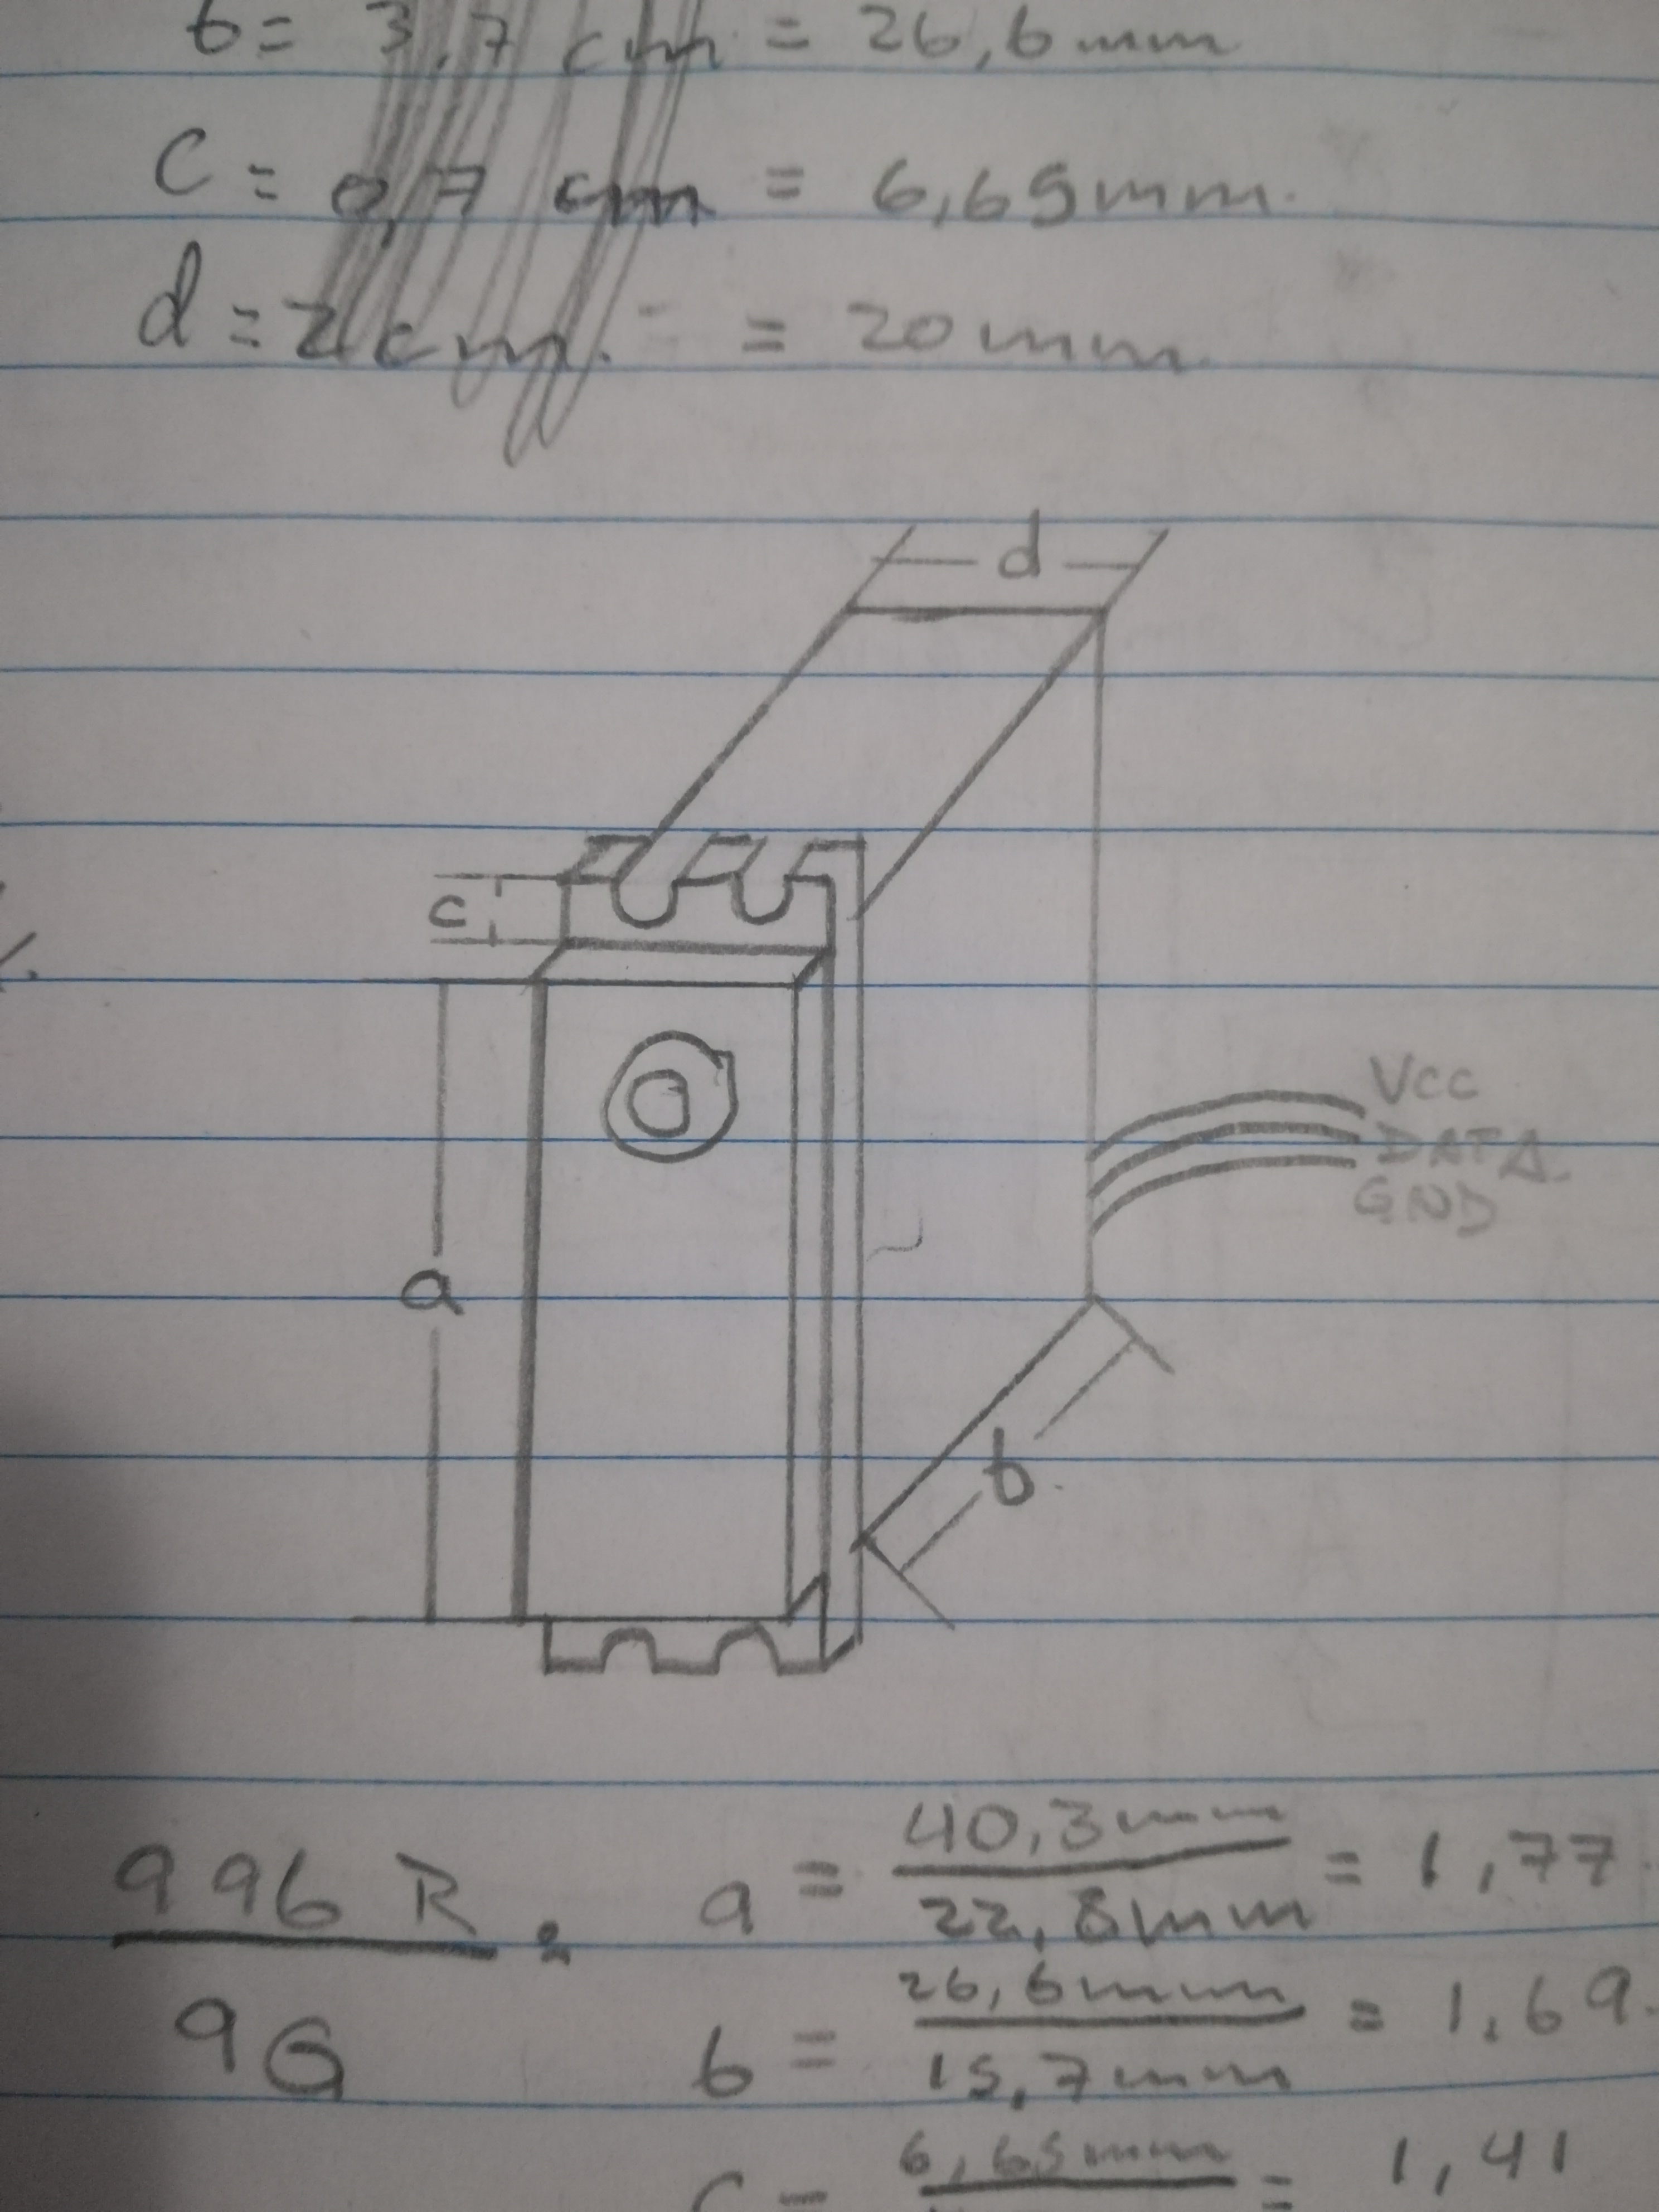 b = 3,7 cm = 26,6mm
c = 0,7 cm = 6,65mm.
d = 2 cm. = 20mm.
d
c
Vcc
DATA
GND
a
b
996 R a = 40,3mm = 1,77
22,8mm
9G
b = 26,6mm = 1,69
15,7mm
c = 6,65mm = 1,41